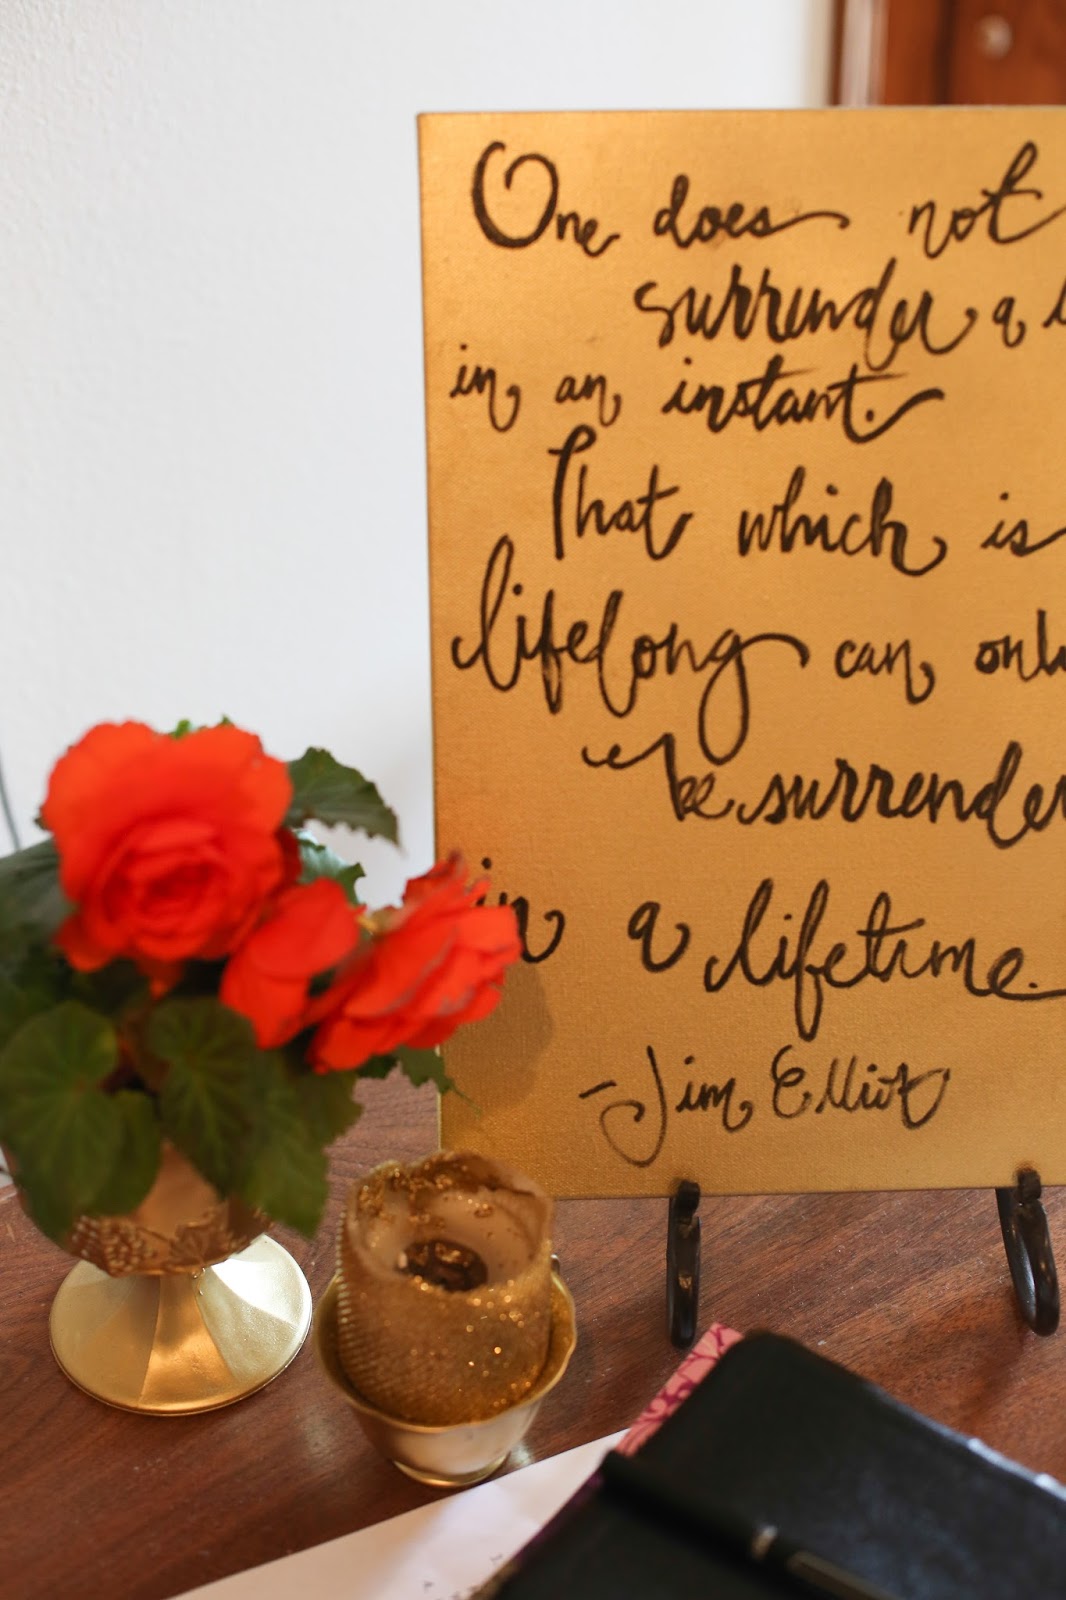 One does not
surrender a
in an instant.
That which is
lifelong can only
be surrender
in a lifetime.
-Jim Elliot